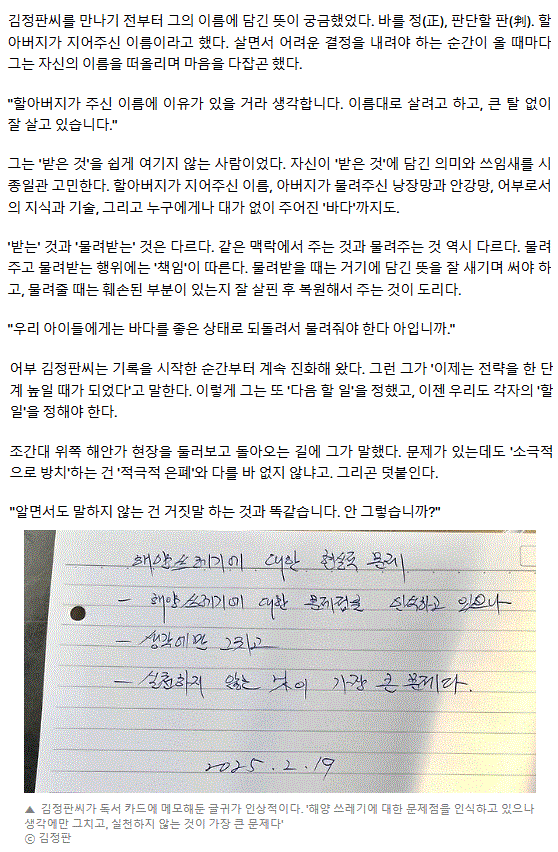 김정판씨를 만나기 전부터 그의 이름에 담긴 뜻이 궁금했었다. 바를 정(正), 판단할 판(判). 할
아버지가 지어주신 이름이라고 했다. 살면서 어려운 결정을 내려야 하는 순간이 올 때마다
그는 자신의 이름을 떠올리며 마음을 다잡곤 했다.
"할아버지가 주신 이름에 이유가 있을 거라 생각합니다. 이름대로 살려고 하고, 큰 탈 없이
잘 살고 있습니다."
그는 '받은 것'을 쉽게 여기지 않는 사람이었다. 자신이 '받은 것'에 담긴 의미와 쓰임새를 시
종일관 고민한다. 할아버지가 지어주신 이름, 아버지가 물려주신 낭장망과 안강망, 어부로서
의 지식과 기술, 그리고 누구에게나 대가 없이 주어진 '바다'까지도.
'받는' 것과 '물려받는' 것은 다르다. 같은 맥락에서 주는 것과 물려주는 것 역시 다르다. 물려
주고 물려받는 행위에는 '책임'이 따른다. 물려받을 때는 거기에 담긴 뜻을 잘 새기며 써야 하
고, 물려줄 때는 훼손된 부분이 있는지 잘 살핀 후 복원해서 주는 것이 도리다.
"우리 아이들에게는 바다를 좋은 상태로 되돌려서 물려줘야 한다 아입니까."
어부 김정판씨는 기록을 시작한 순간부터 계속 진화해 왔다. 그런 그가 '이제는 전략을 한 단
계 높일 때가 되었다'고 말한다. 이렇게 그는 또 '다음 할 일'을 정했고, 이젠 우리도 각자의 '할
일'을 정해야 한다.
조간대 위쪽 해안가 현장을 둘러보고 돌아오는 길에 그가 말했다. 문제가 있는데도 '소극적
으로 방치'하는 건 '적극적 은폐'와 다를 바 없지 않냐고. 그리곤 덧붙인다.
"알면서도 말하지 않는 건 거짓말 하는 것과 똑같습니다. 안 그렇습니까?"
해양쓰레기에 대한 현실로 문제
- 해양쓰레기에 대한 문제점을 인식하고 있으나
- 생각에만 그치고
- 실천하지 않는 것이 가장 큰 문제다.
2025. 2. 19
▲ 김정판씨가 독서 카드에 메모해둔 글귀가 인상적이다. '해양 쓰레기에 대한 문제점을 인식하고 있으나
생각에만 그치고, 실천하지 않는 것이 가장 큰 문제다'
ⓒ 김정판